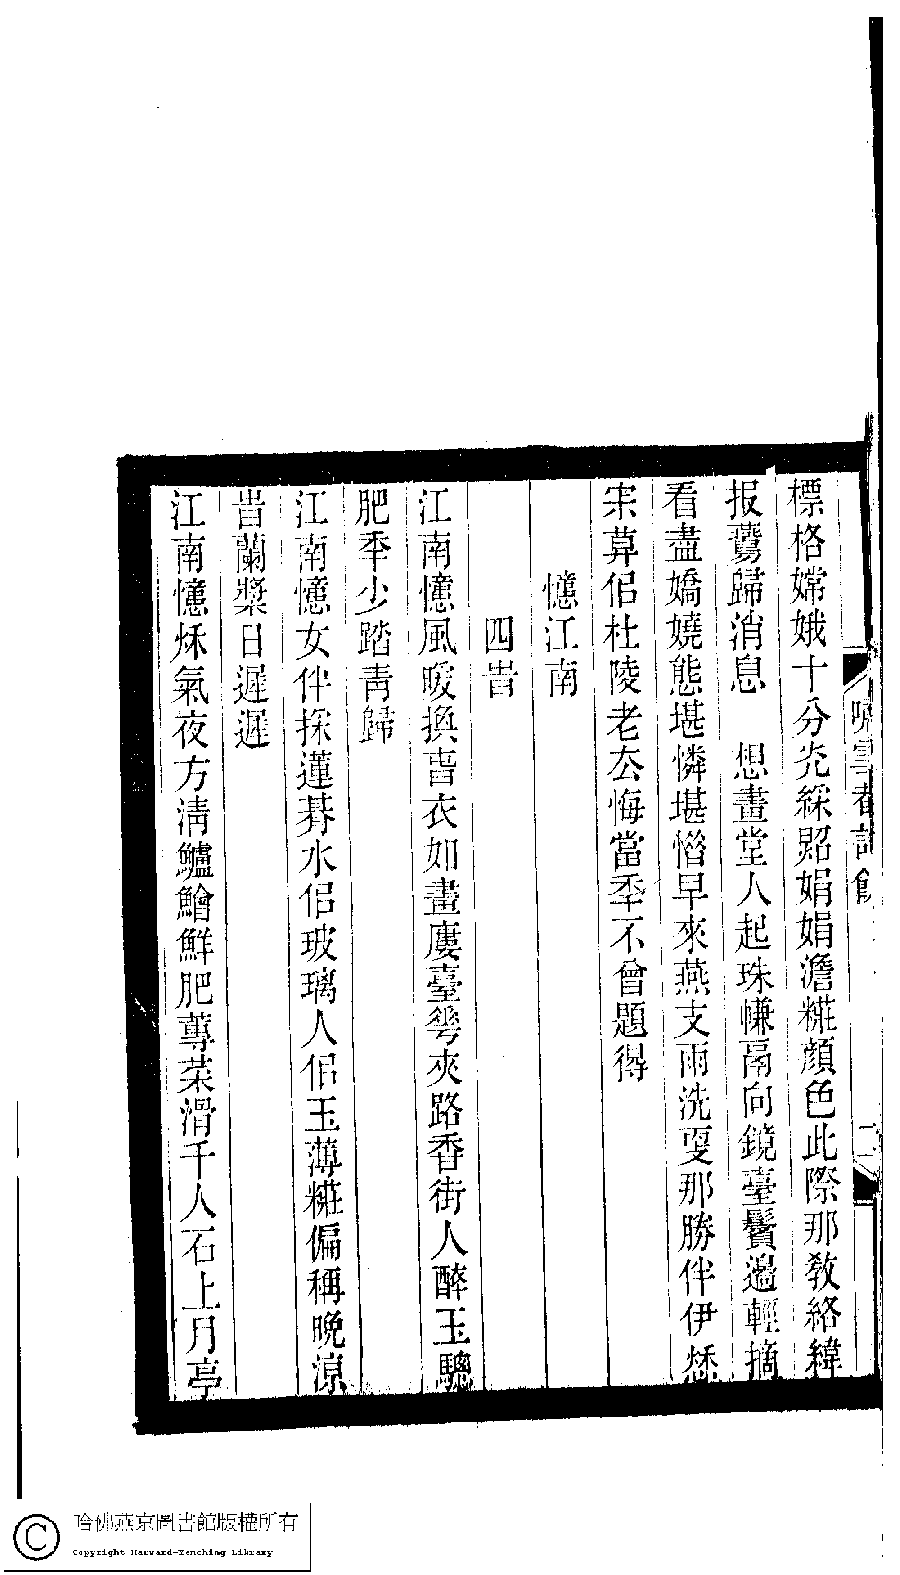 標格嫦娥十分光綵照娟娟澹糚顔色此際那敎絡緯
报𩀌歸消息　想畫堂人起珠㡘鬲向鏡臺鬢邊輕摘
看盡嬌嬈態堪憐堪惜早來燕支雨洗㪅那勝伴伊愁
宋葬侣杜陵老去悔當秊不曾題得
憶江南
四旹
江南憶風暖換旾衣如畫廔臺䔢夾路香街人醉玉驄
肥秊少踏靑歸
江南憶女伴採蓮旹水侣玻璃人侣玉薄糚偏稱晩涼
旹蘭槳日遲遲
江南憶秌氣夜方淸鱸鱠鮮肥蓴菜滑千人石上月亭
二
哈佛燕京圖書館版權所有
Copyright Harvard-Yenching Library